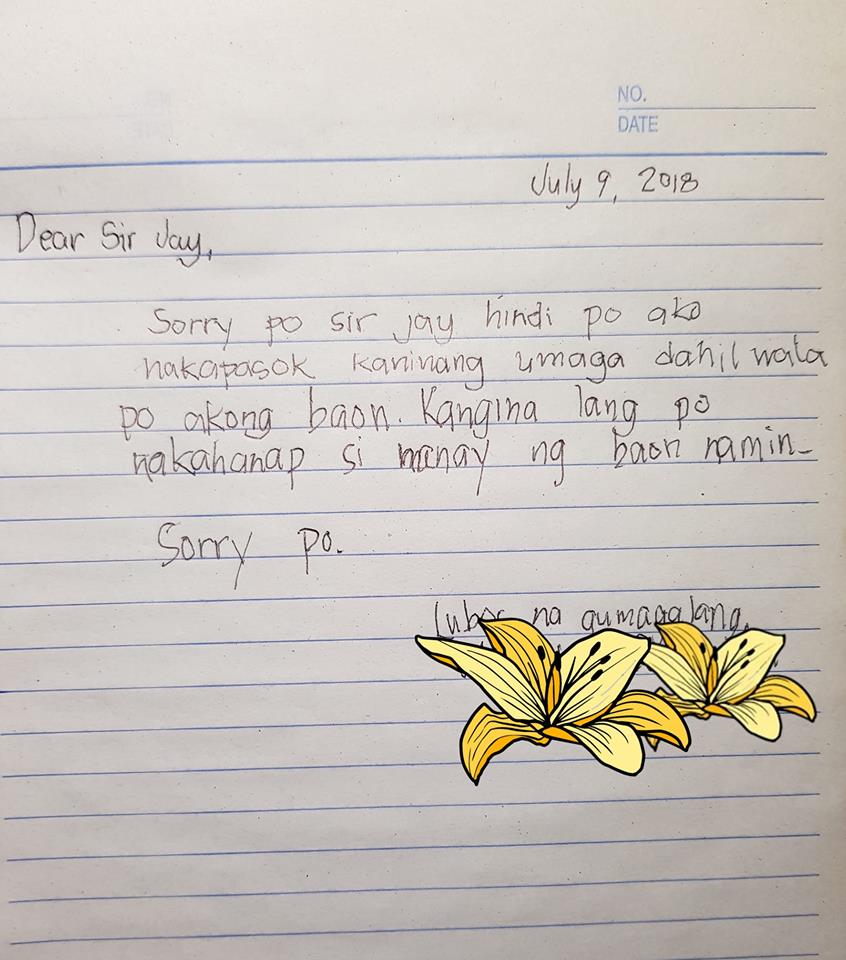 NO.
DATE
July 9, 2018
Dear Sir Jay,
Sorry po sir jay hindi po ako
nakapasok kaninang umaga dahil wala
po akong baon. Kangina lang po
nakahanap si nanay ng baon namin.
Sorry po.
Lubos na gumagalang,